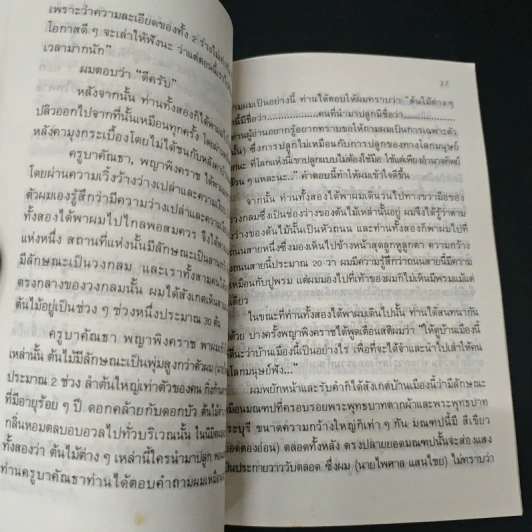 เพราะว่าความละเอียดของทั้ง 2 ร่าง
โอกาสดี ๆ จะเล่าให้ฟังนะ ว่าแต่ตอนนี้เรา
เวลามากนัก"
ผมตอบว่า "ดีครับ"
หลังจากนั้น ท่านทั้งสองก็ได้พาผม
ปลิวออกไปจากที่นั้นเหมือนทุกครั้ง โดยผ่าน
หลังคามุงกระเบื้องโดยไม่ได้ชนกับหลังคา
ครูบาคัณธา, พญาพิงคราช ได้พาผม
โดยผ่านความเวิ้งว้างว่างเปล่าและความ
ตัวผมเองรู้สึกว่ามีความว่างเปล่าและความ
ทั้งสองได้พาผมไปไกลพอสมควร จึงได้
แห่งหนึ่ง สถานที่แห่งนั้นมีลักษณะเป็นลาน
มีลักษณะเป็นวงกลม และเราทั้งสามคน
ตรงกลางของวงกลมนั้น ผมได้สังเกตเห็น
ต้นไม้อยู่เป็นช่วง ๆ ช่วงหนึ่งประมาณ 30 ต้น
ครูบาคัณธา พญาพิงคราช พาผม
เหล่านั้น ต้นไม้มีลักษณะเป็นพุ่มสูงกว่าตัวผม
ประมาณ 2 ช่วง ลำต้นใหญ่เท่าตัวของคน
ที่มีอายุร้อย ๆ ปี ดอกคล้ายกับดอกบัว
กลิ่นหอมตลบอบอวลไปทั่วบริเวณนั้น
ทั้งสองว่า ต้นไม้ต่าง ๆ เหล่านี้ใครนำมาปลูก
ท่านครูบาคัณธาท่านได้ตอบคำถามผมเหมือน
ถามผมเป็นอย่างนี้ ท่านได้ตอบให้ผมทราบว่า "ต้นไม้ต่าง ๆ
นี้มีชื่อว่า..............คนที่นำมาปลูกมีชื่อว่า..............
ท่านผู้อ่านอยากรู้อยากทราบขอให้ถามผมเป็นการเฉพาะตัว
ซึ่งการปลูกไม่เหมือนกับการปลูกของทางโลกมนุษย์
ที่โลกแห่งนี้เขาปลูกแบบไม่ต้องใช้มือ ใช้แต่เพียงอำนาจทิพย์
ล้วน ๆ แหละนะ.." คำตอบนี้ทำให้ผมเข้าใจดีขึ้น
จากนั้น ท่านทั้งสองได้พาผมเดินวนไปทางขวามือของ
วงกลมซึ่งเป็นช่องว่างของต้นไม้เหล่านั้นอยู่ ผมจึงได้รู้ว่าตาม
ของต้นไม้นั้นเป็นหัวถนน และท่านทั้งสองก็พาผมไปที่
ถนนสายหนึ่งซึ่งมองเห็นไปข้างหน้าสุดลูกหูลูกตา ความกว้าง
ถนนสายนี้ประมาณ 20 วา ผมมีความรู้สึกว่าถนนสายนี้มีความ
เหมือนกับปูพรม แต่ผมมองไปที่เท้าของผมก็ไม่เห็นมีพรมแม้แต่
เดียว
ในขณะที่ท่านทั้งสองได้พาผมเดินไปนั้น ท่านได้สนทนากัน
ด้วย บางครั้งพญาพิงคราชได้พูดเตือนสติผมว่า "ให้ดูบ้านเมืองนี้
นะว่าบ้านเมืองนี้เป็นอย่างไร เพื่อที่จะได้จำและนำไปเล่าให้คน
โลกมนุษย์ฟัง..."
ผมพยักหน้าและรับคำก็ได้สังเกตบ้านเมืองนี้ว่ามีลักษณะ
เหมือนมณฑปที่ครอบรอยพระพุทธบาทตากผ้าและพระพุทธบาท
สระบุรี ขนาดความกว้างใหญ่ก็เท่า ๆ กัน มณฑปนี้มี สีเขียว
ตลอดทั้งหลัง ตรงปลายยอดมณฑปนั้นจะส่องแสง
เป็นประกายวาววับตลอด ซึ่งผม (นายไพศาล แสนไชย) ไม่ทราบว่า